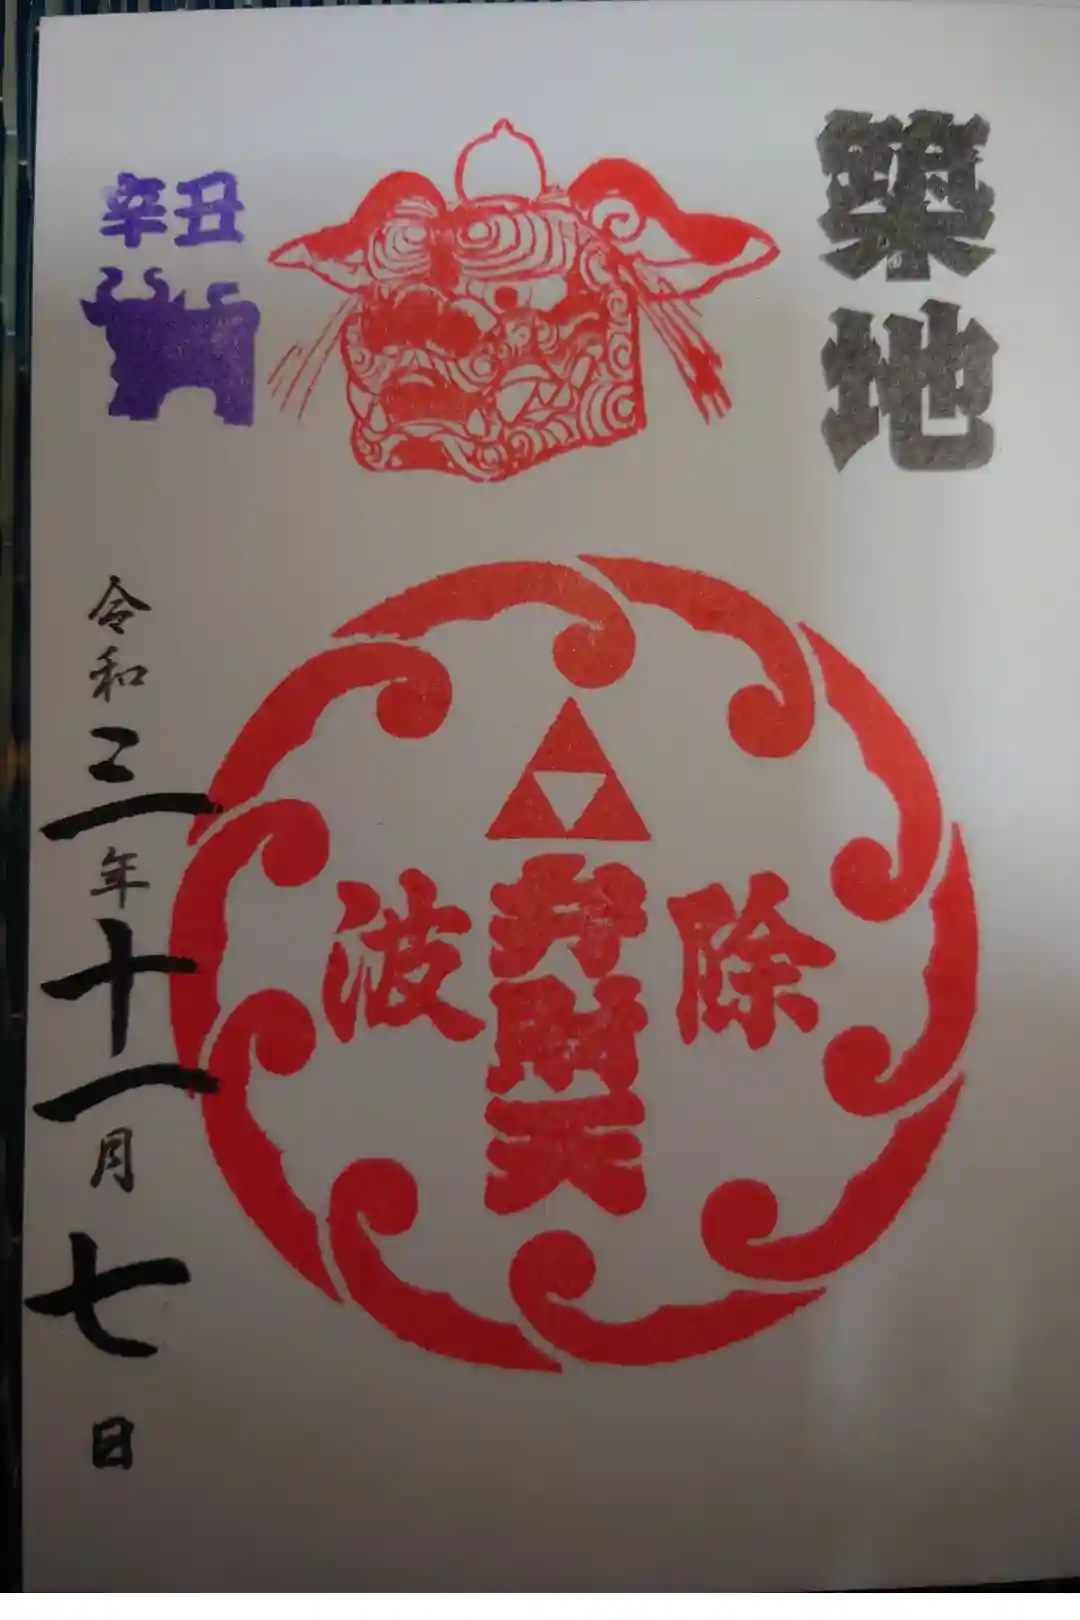 築地
除
弁財天
波
辛丑
令和三年十一月七日